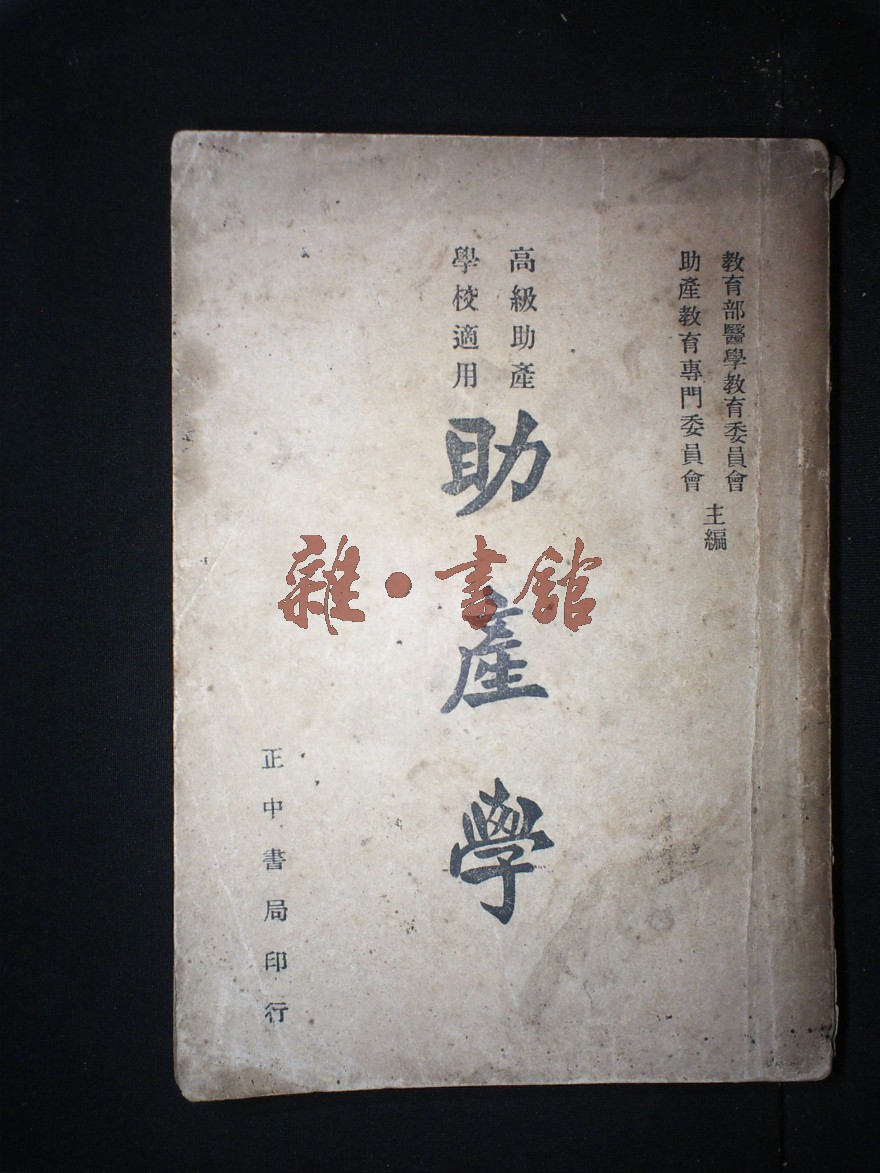 教育部醫學教育委員會
助產教育專門委員會
主編
高級助產
學校適用
助產學
正中書局印行
雜·書館